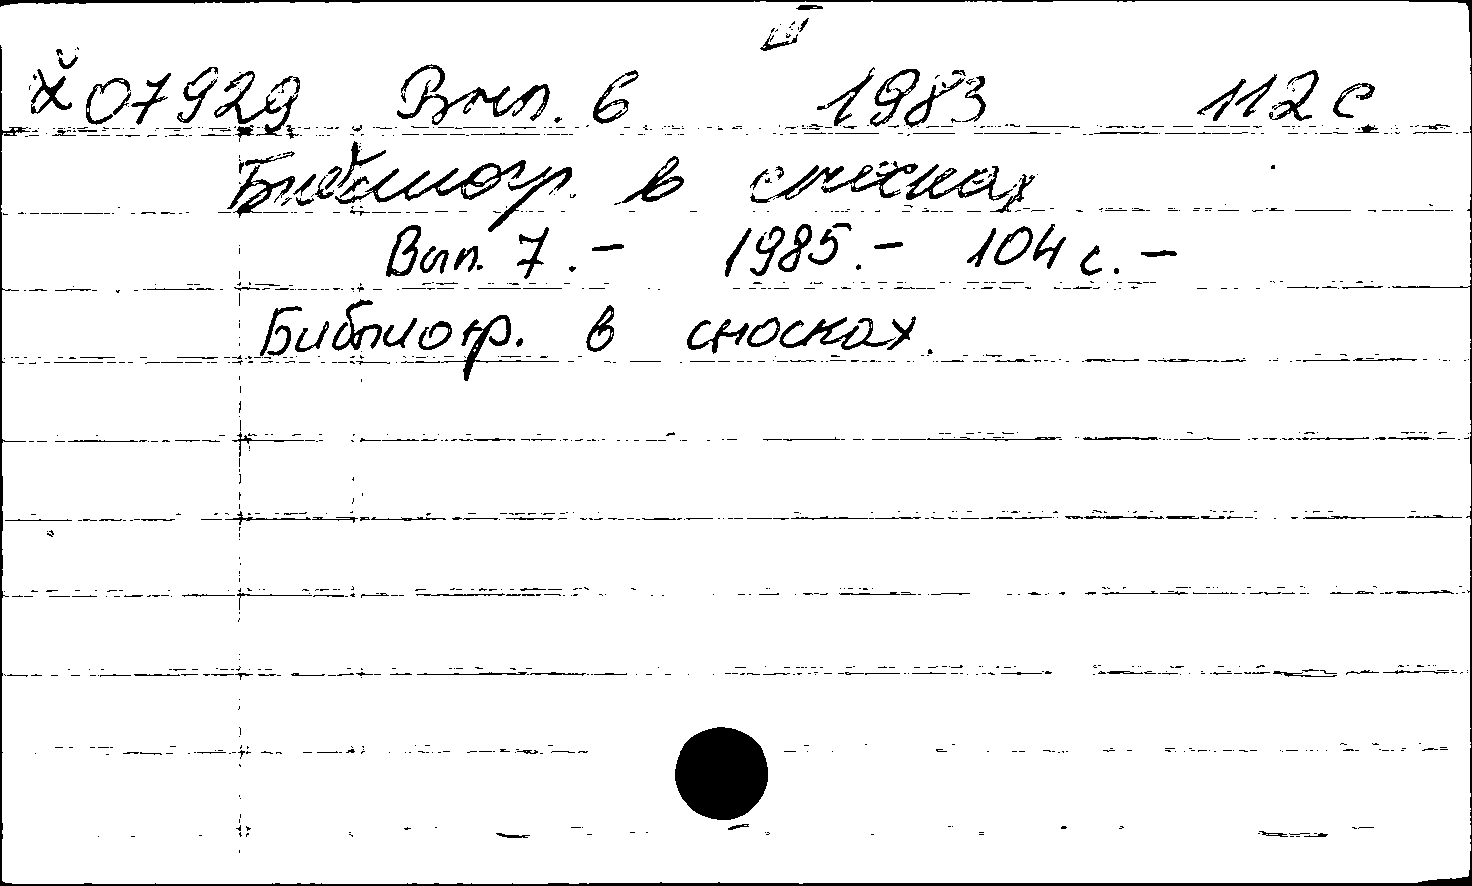 III
ӽ07929 Вып. 6 1983 112 с.
Библиогр. в сносках
Вып. 7.- 1985.- 104 с.-
Библиогр. в сносках.